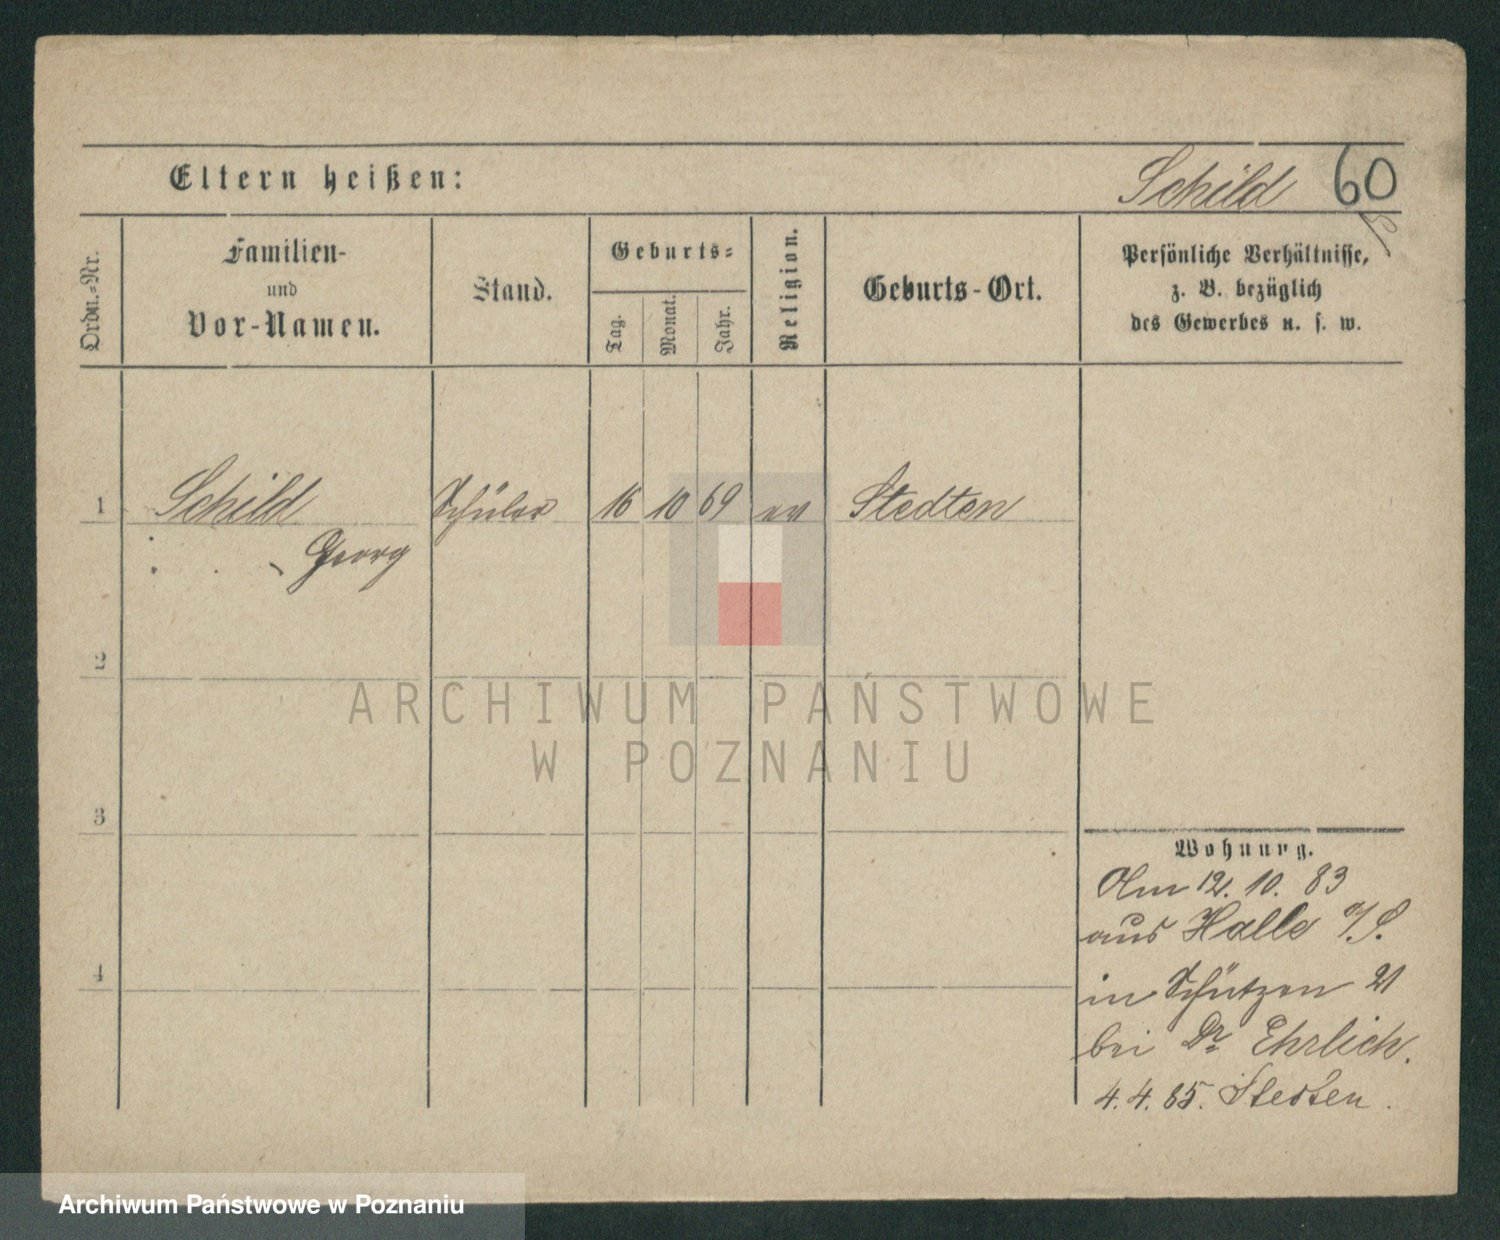 Eltern heißen:
Schild 60
Ordn.-Nr.
Familien-
und
Vor-Namen.
Stand.
Geburts-
Tag.
Monat.
Jahr.
Religion.
Geburts-Ort.
Persönliche Verhältnisse,
z. B. bezüglich
des Gewerbes u. s. w.
1 Schild Schüler 16 10 69 ev Stedten
Georg
2
3
4
Wohnung.
Am 12. 10. 83
aus Halle a/S.
in Schützen 21
bei Dr Ehrlich.
4. 4. 85. Stedten.
ARCHIWUM PAŃSTWOWE
W POZNANIU
Archiwum Państwowe w Poznaniu